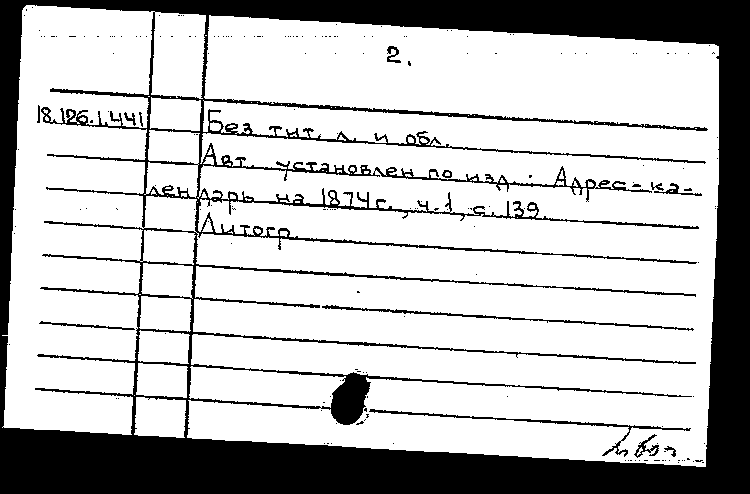 2.
18.126.1.441
Без тит. л. и обл.
Авт. установлен по изд.: Адрес-ка-
лендарь на 1874г., ч.1, с. 139.
Литогр.